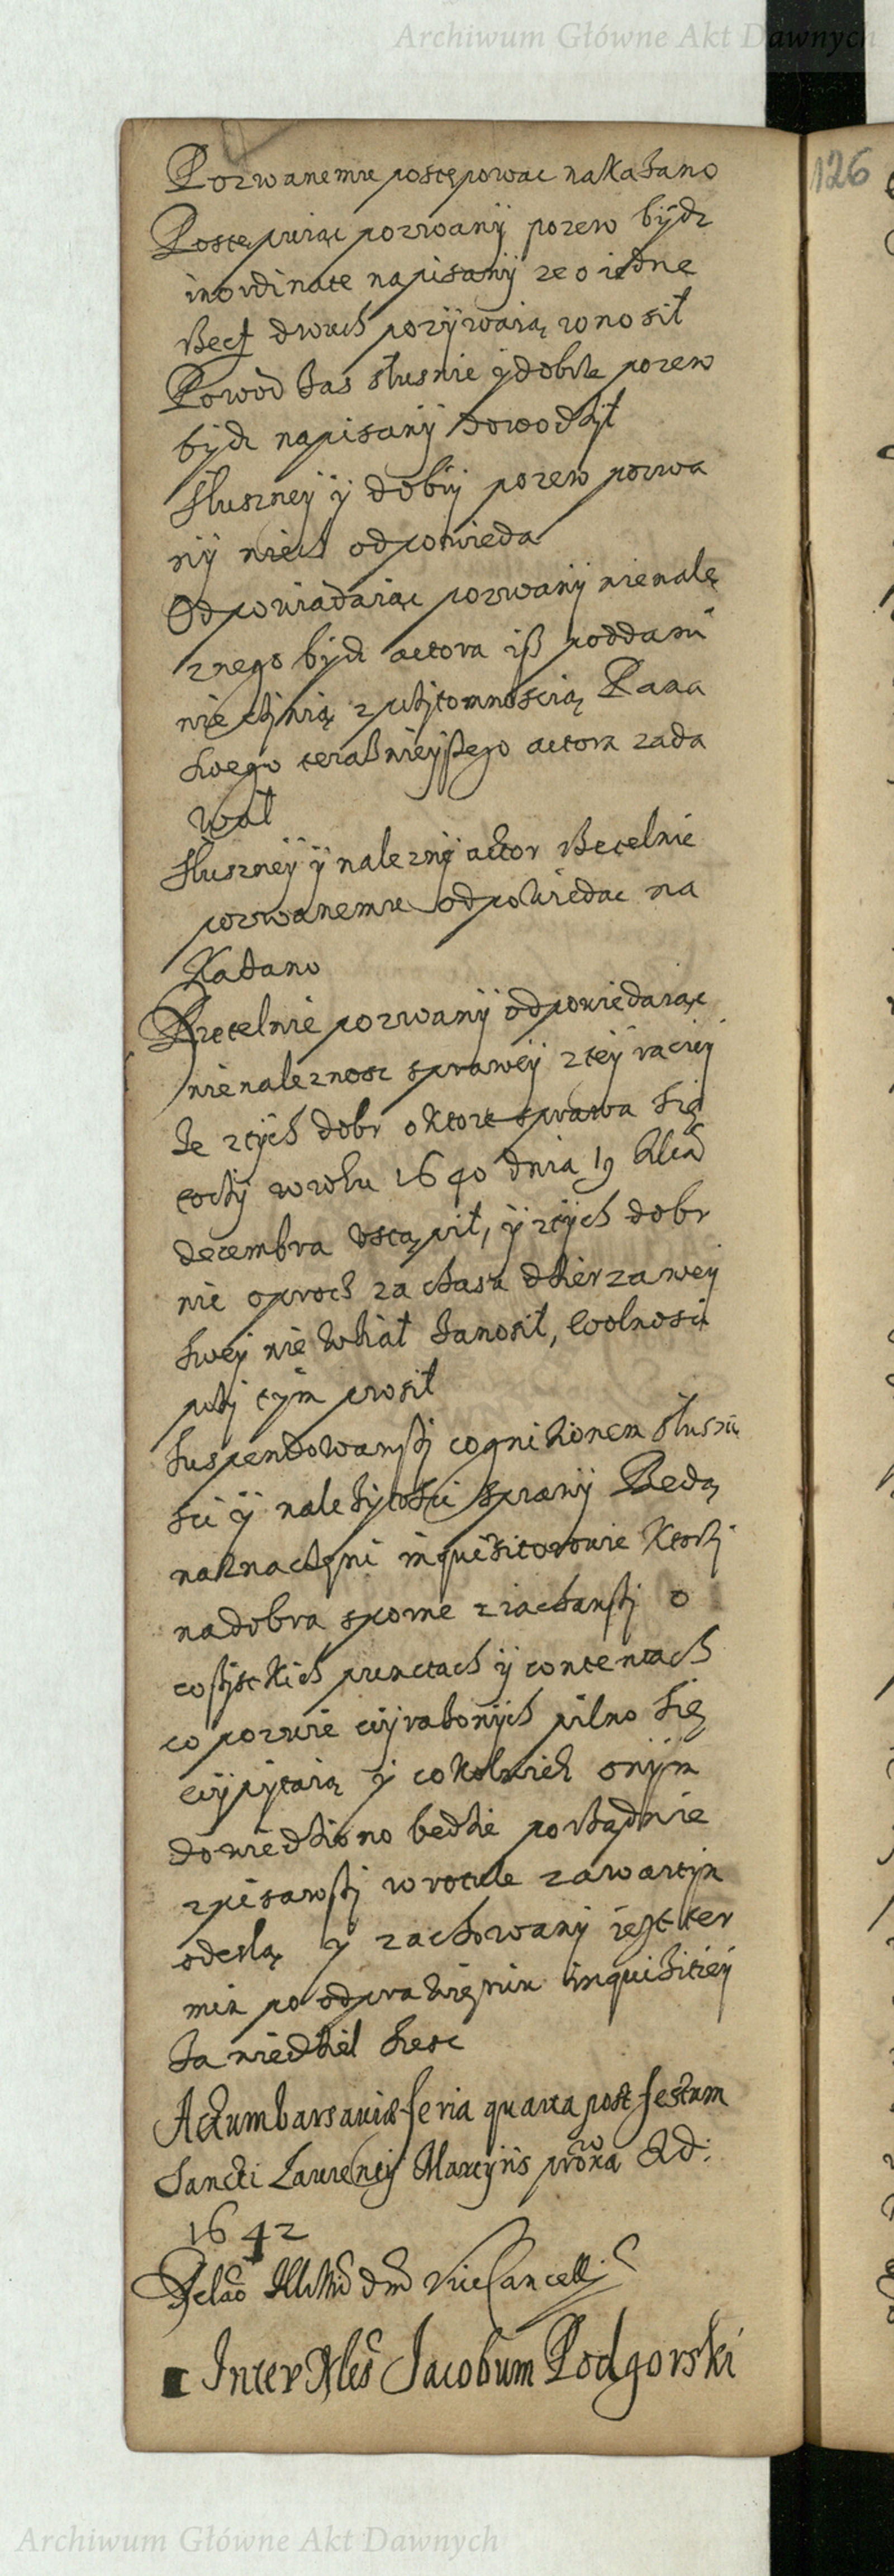 Archiwum Główne Akt Dawnych
126
Pozwanemu postępowac nakazano
Postępuiąc pozwanÿ pozew bÿdz
inordinate napisanÿ ze o iedne
Recz dwuch pozÿwaią wnosił
Powod zas slusnie ÿ dobrze pozew
bÿdz napisanÿ dowodził
Słuszneÿ ÿ dobrÿ pozew pozwa
nÿ niech odpowieda
Odpowiadaiąc pozwanÿ nienale
znego bÿdz actora iß poddani
nie czÿnią z przÿtomnoscią Pana
swego teraznieÿszego actora zada
wał
Sluszneÿ ÿ naleznÿ actor Rzetelnie
pozwanemu odpowiedac na
kazano
Rzetelnie pozwanÿ odpowiedaiąc
nienaleznosc spraweÿ z teÿ raciej
ze z tÿch dobr o ktore sprawa się
toczÿ w roku 1640 dnia 19
decembra ustąpił, ÿ z tÿch dobr
nie oproch za czasu dzierzaweÿ
sweÿ nie wziął zanosił, wolnosci
przÿ tÿm prosił
Suspendowawszÿ cognitionem słuszno
sci ÿ nalezÿtosci sprawÿ Będą
naznaczeni inquisitorowie ktorzÿ
na dobra sporne ziachawszÿ o
wszÿstkich punctach ÿ contentach
w pozwie wÿrazonÿch pilno się
wÿpÿtaią ÿ cokolwiek onÿm
dowiedziono bedzie porządnie
spisawszÿ w rotule zawartÿm
odeslą ÿ zachowanÿ iest ter
min po odprawieniu inquisitieÿ
za niedziel szesc
Actum Varsaviæ feria quarta post festum
Sancti Laurentÿ Martÿris proxa Ad:
1642
Relao Illmi dni ViceCancellÿ
Inter Nles Jacobum Podgorski
Archiwum Główne Akt Dawnych